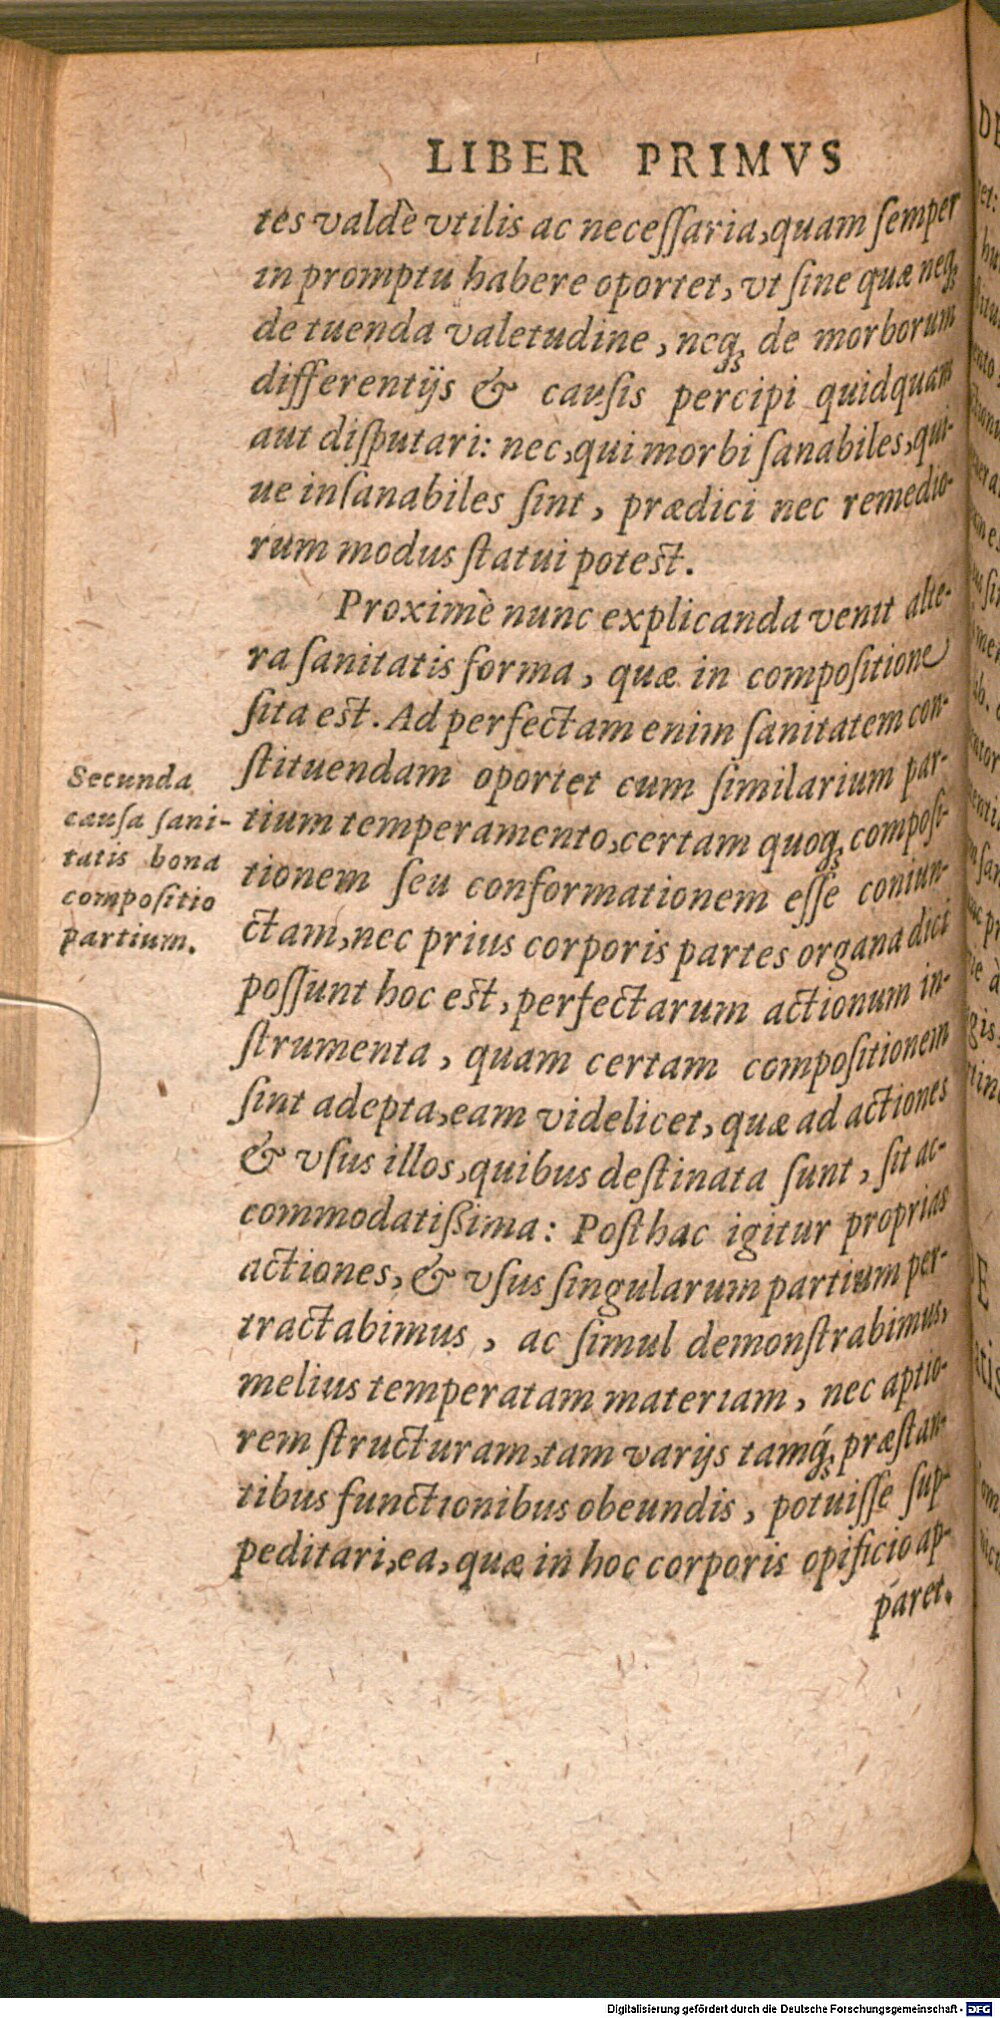 LIBER PRIMVS
tes valdè vtilis ac necessaria, quam semper
in promptu habere oportet, vt sine quæ neq;
de tuenda valetudine, neq; de morborum
differentijs & causis percipi quidquam
aut disputari: nec, qui morbi sanabiles, qui-
ue insanabiles sint, prædici nec remedio-
rum modus statui potest.
Proximè nunc explicanda venit alte-
ra sanitatis forma, quæ in compositione
sita est. Ad perfectam enim sanitatem con-
stituendam oportet cum similarium par-
tium temperamento, certam quoq; composi-
tionem seu conformationem esse coniun-
ctam, nec prius corporis partes organa dici
possunt hoc est, perfectarum actionum in-
strumenta, quam certam compositionem
sint adepta, eam videlicet, quæ ad actiones
& vsus illos, quibus destinata sunt, sit ac-
commodatissima: Posthac igitur proprias
actiones, & vsus singularum partium per-
tractabimus, ac simul demonstrabimus,
melius temperatam materiam, nec aptio-
rem structuram, tam varijs tamq́; præstan-
tibus functionibus obeundis, potuisse sup-
peditari, ea, quæ in hoc corporis opificio ap-
paret.
Secunda
causa sani-
tatis bona
compositio
partium.
Digitalisierung gefördert durch die Deutsche Forschungsgemeinschaft - DFG